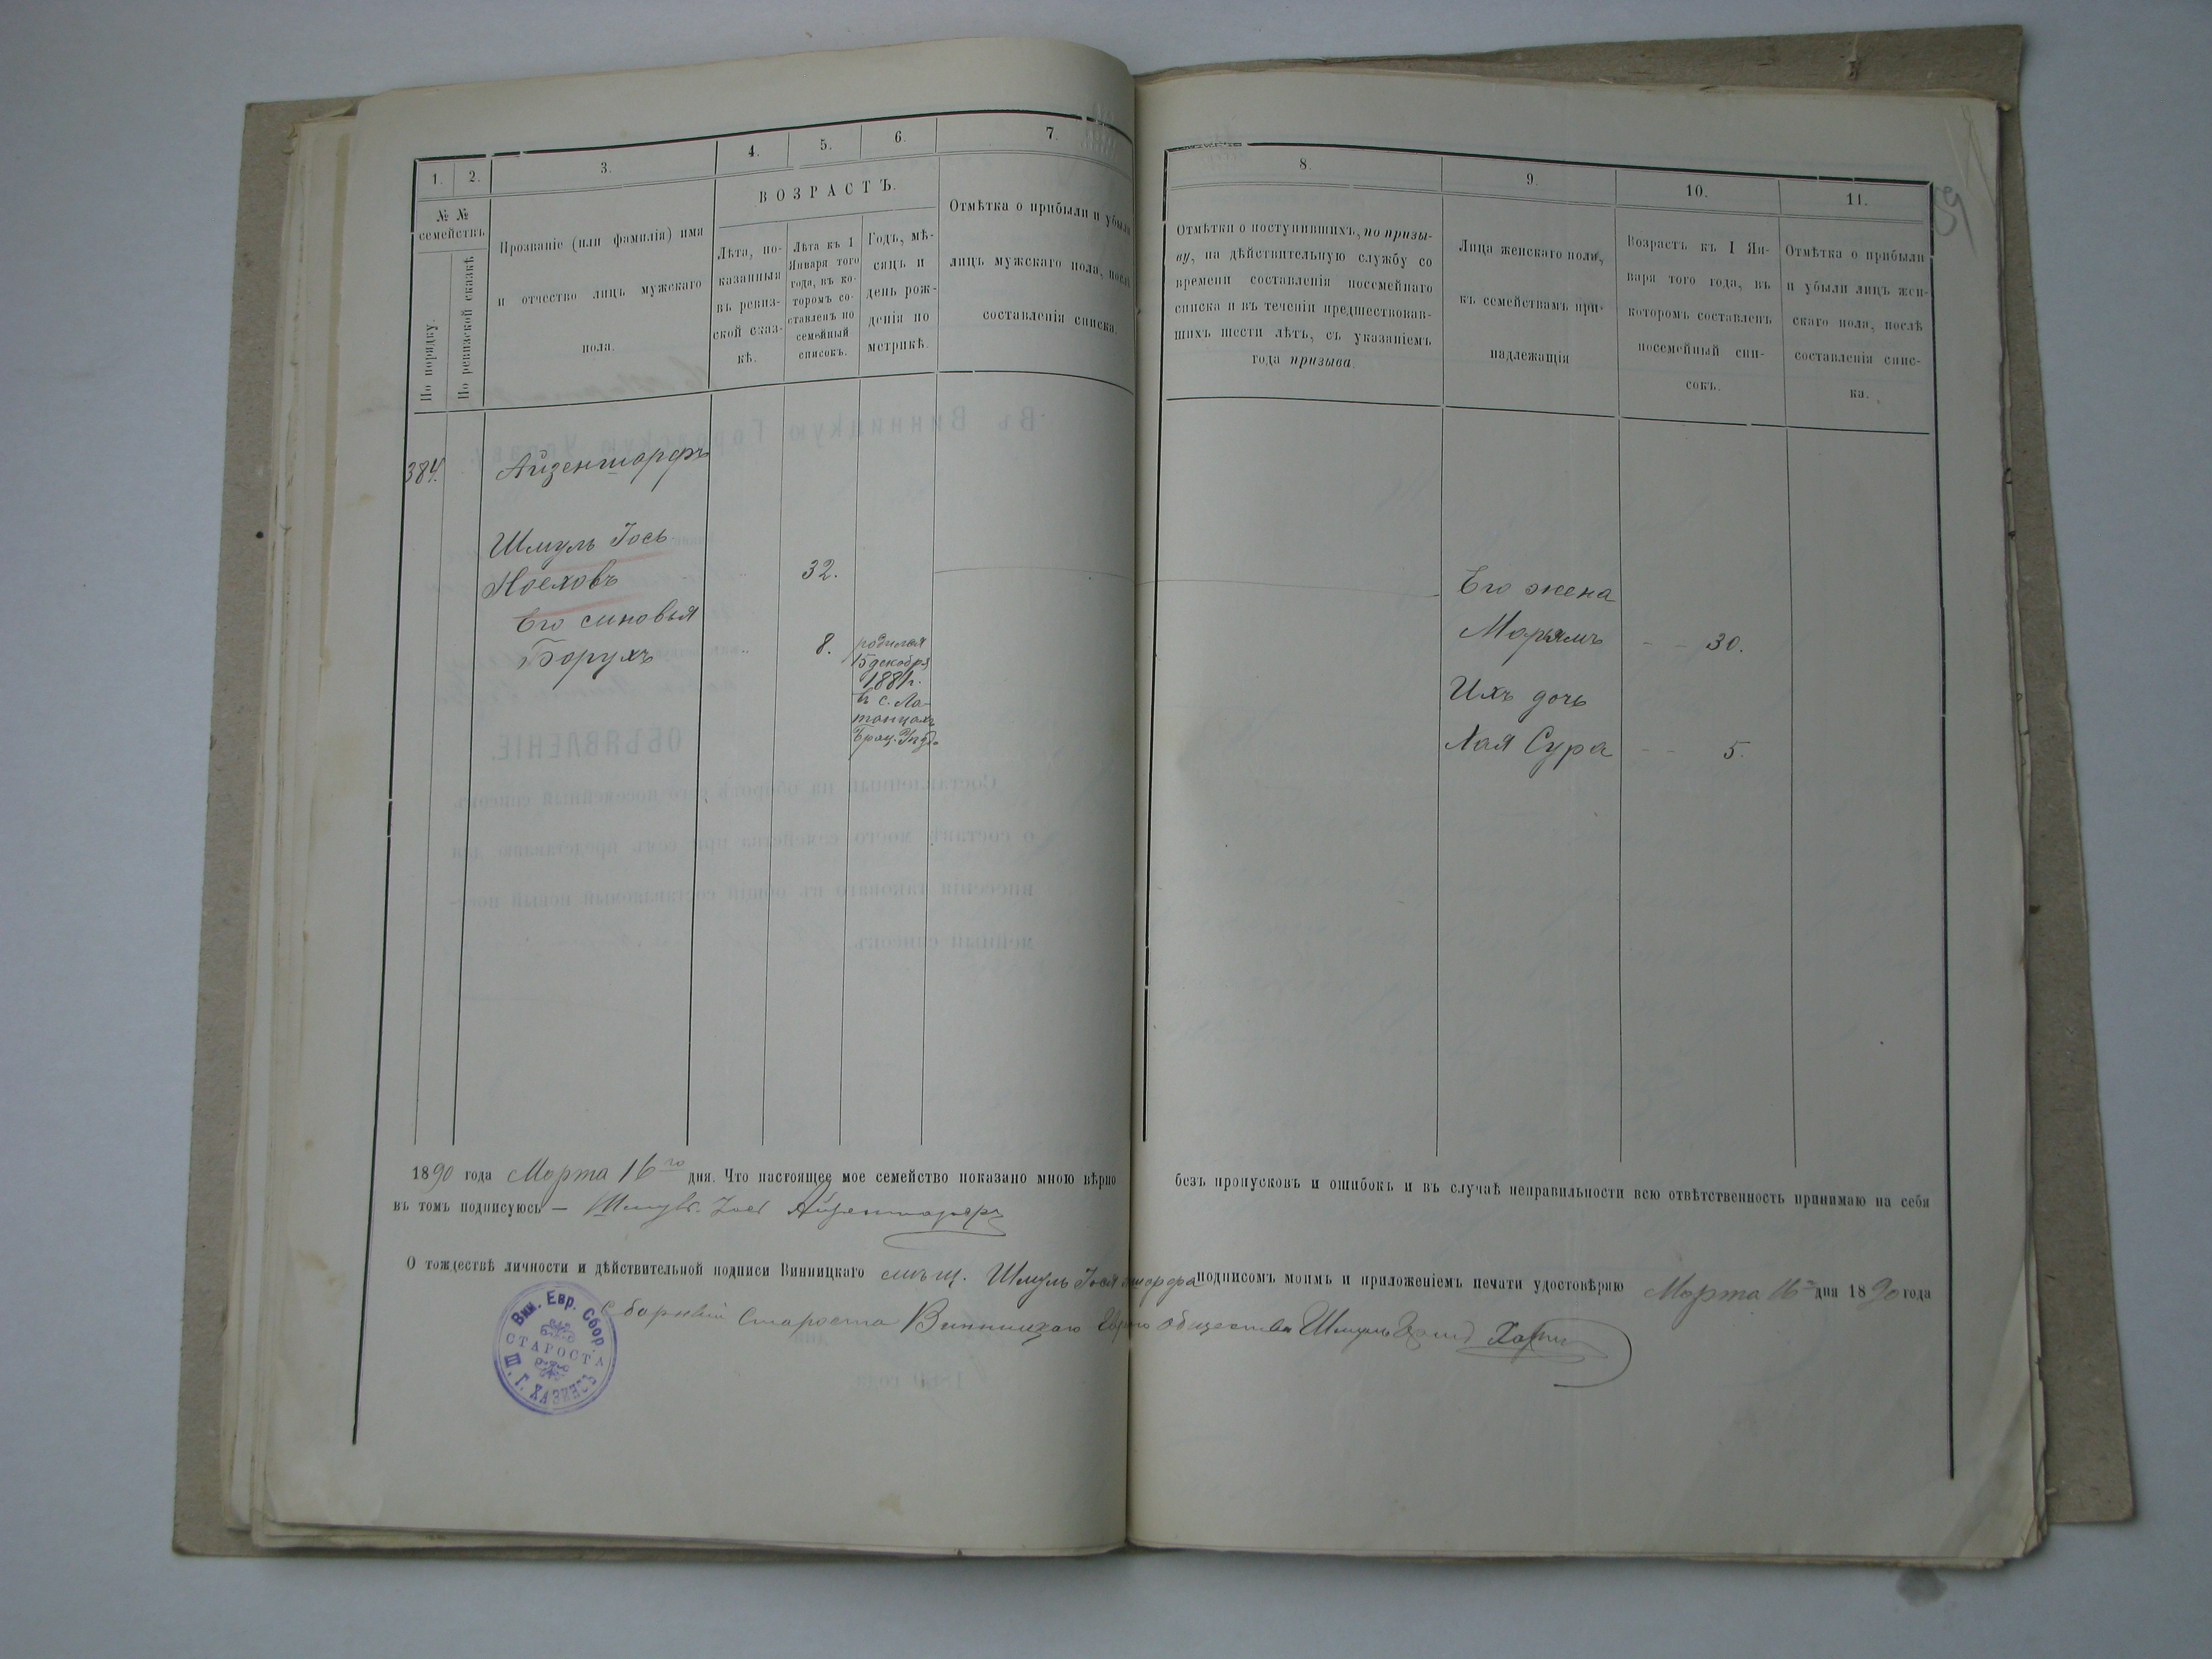 1. 2. 3. 4. 5. 6. 7.
№ №
семействъ
По порядку.
По ревизской сказкѣ
Прозваніе (или фамилія) имя
и отчество лицъ мужскаго
пола.
ВОЗРАСТЪ.
Лѣта, по-
казанныя
въ ревиз-
ской сказ-
кѣ.
Лѣта къ 1
Января того
года, въ ко-
торомъ со-
ставленъ по
семейный
списокъ.
Годъ, мѣ-
сяцъ и
день рож-
денія по
метрикѣ.
Отмѣтка о прибыли и убыли
лицъ мужскаго пола, послѣ
составленія списка.
384.
Айзеншарфъ
Шмуль Іось
32.
Его синовья
Борухъ
8.
родился
15 декабря
1881г.
въ с.
8. 9. 10. 11.
Отмѣтки о поступившихъ, по призы-
ву, на дѣйствительную службу со
времени составленія посемейнаго
списка и въ теченіи предшествовав-
шихъ шести лѣтъ, съ указаніемъ
года призыва.
Лица женскаго пола,
къ семействамъ при-
надлежащія
Возрастъ къ 1 Ян-
варя того года, въ
которомъ составленъ
посемейный спи-
сокъ.
Отмѣтка о прибыли
и убыли лицъ жен-
скаго пола, послѣ
составленія спис-
ка.
Его жена
Марьямъ - - 30.
Ихъ дочь
Лая Сура - - 5.
1890 года Марта 16го дня. Что настоящее мое семейство показано мною вѣрно безъ пропусковъ и ошибокъ и въ случаѣ неправильности всю отвѣтственность принимаю на себя
въ томъ подписуюсь — Шмуль Іось Айзеншарфъ
О тождествѣ личности и дѣйствительной подписи Винницкаго мѣщ. Шмуль Іося подписомъ моимъ и приложеніемъ печати удостовѣряю Марта 16го дня 1890 года
Сборный Староста Винницкаго общества Шмуль
Вин. Евр. Сбор.
СТАРОСТА
Ш. Г. ХАЗИНЪ